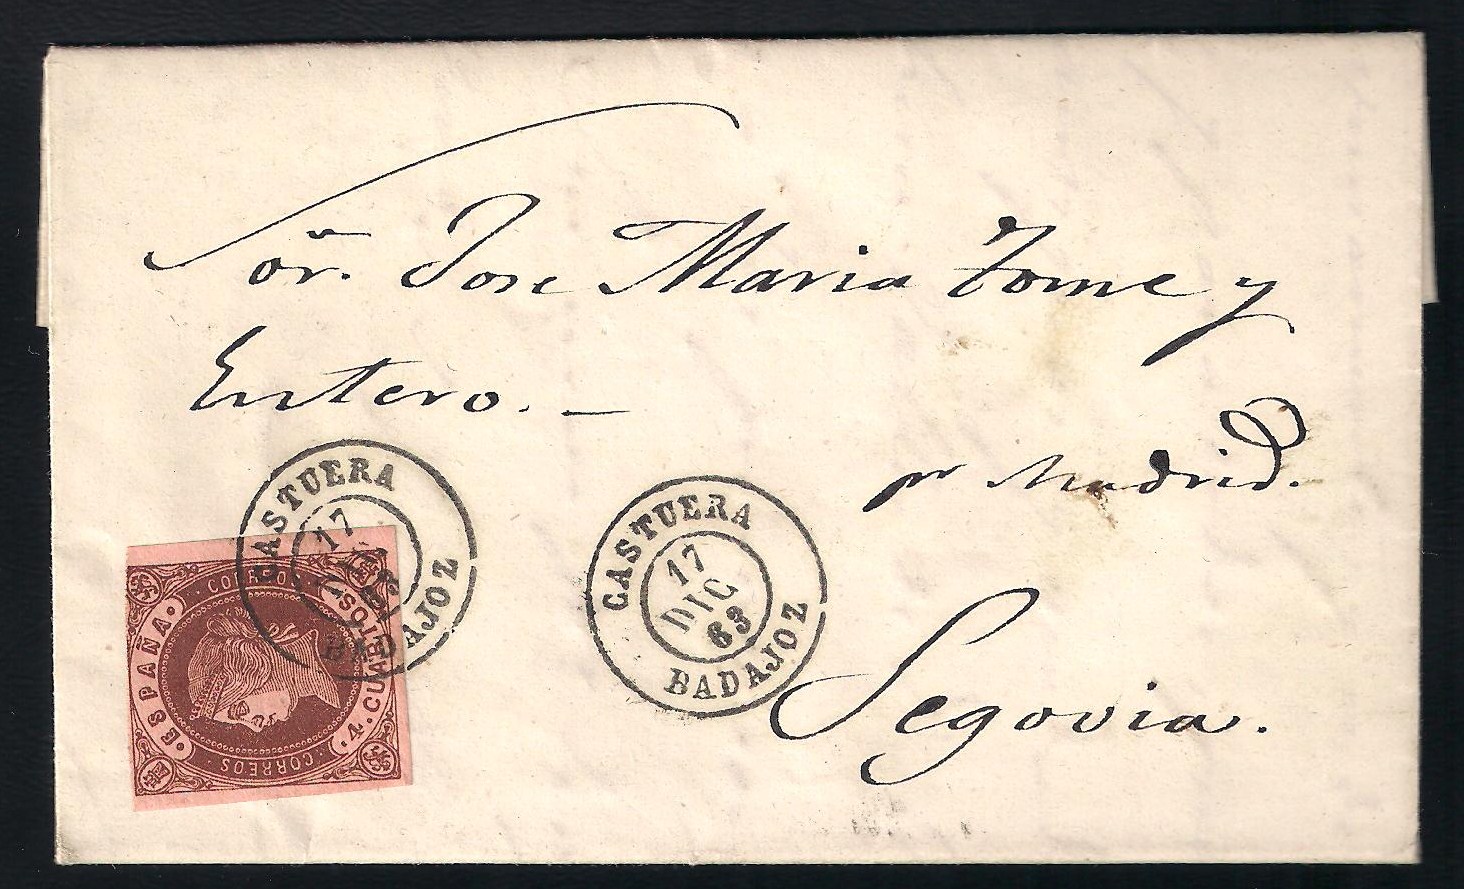 Sor. Jose Maria Tome y
Entero. —
pr Madrid.
Segovia.
CASTUERA
17
DIC
63
BADAJOZ
CASTUERA
17
DIC
63
BADAJOZ
ESPAÑA
CORREOS
4. CUARTOS
CORREOS